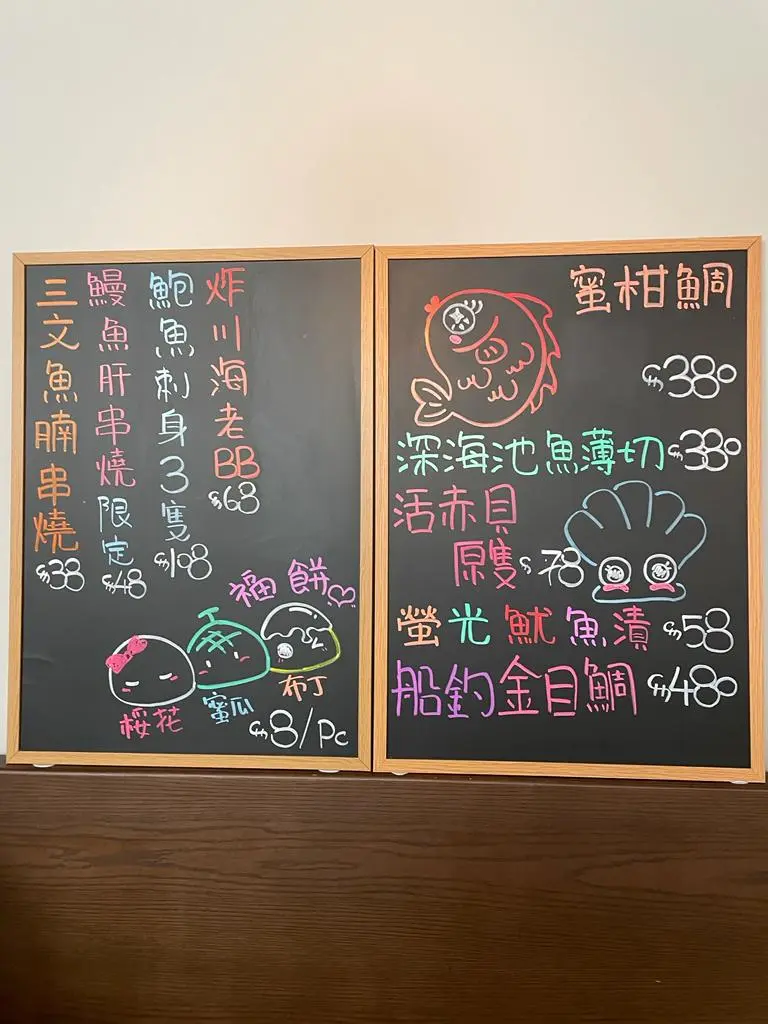 炸川海老BB
$68
鮑魚刺身3隻
$108
鰻魚肝串燒限定
$48
三文魚腩串燒
$38
福餅
桜花
蜜瓜
布丁
$8/Pc
蜜柑鯛
$380
深海池魚薄切 $380
活赤貝
原隻 $78
螢光魷魚漬 $58
船釣金目鯛 $480